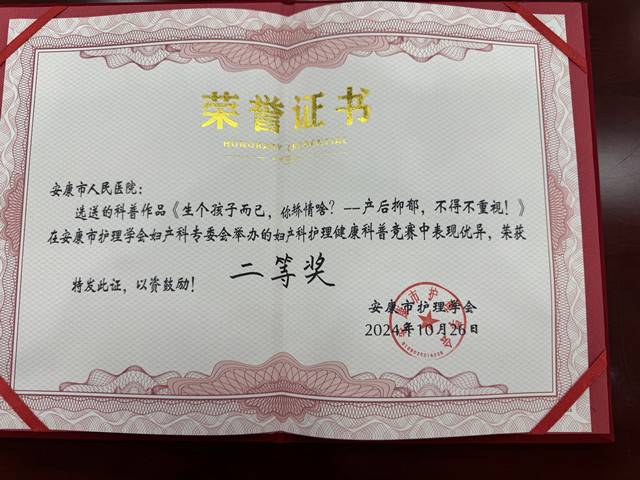 荣誉证书
HONORARY CREDENTIAL
安康市人民医院：
选送的科普作品《生个孩子而已，你矫情啥？--产后抑郁，不得不重视！》
在安康市护理学会妇产科专委会举办的妇产科护理健康科普竞赛中表现优异，荣获
二等奖
特发此证，以资鼓励！
安康市护理学会
2024年10月26日